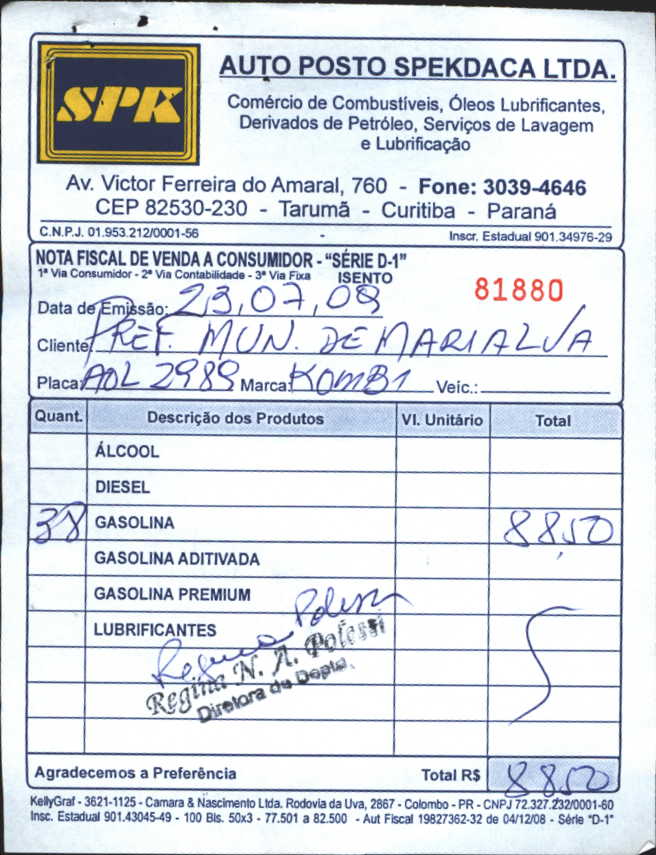 SPK
AUTO POSTO SPEKDACA LTDA.
Comércio de Combustíveis, Óleos Lubrificantes,
Derivados de Petróleo, Serviços de Lavagem
e Lubrificação
Av. Victor Ferreira do Amaral, 760 - Fone: 3039-4646
CEP 82530-230 - Tarumã - Curitiba - Paraná
C.N.P.J. 01.953.212/0001-56 - Inscr. Estadual 901.34976-29
NOTA FISCAL DE VENDA A CONSUMIDOR - "SÉRIE D-1"
1ª Via Consumidor - 2ª Via Contabilidade - 3ª Via Fixa ISENTO
81880
Data de Emissão: 23,07,09
Cliente: PREF. MUN. DE MARIALVA
Placa: AOL 2989 Marca: KOMBI Veic.:
Quant. Descrição dos Produtos Vl. Unitário Total
ÁLCOOL
DIESEL
38 GASOLINA 88,50
GASOLINA ADITIVADA
GASOLINA PREMIUM
LUBRIFICANTES
Regina Polessi
Regina N. A. Polessi
Diretora de Depto.
Agradecemos a Preferência Total R$ 8850
KellyGraf - 3621-1125 - Camara & Nascimento Ltda. Rodovia da Uva, 2867 - Colombo - PR - CNPJ 72.327.232/0001-60
Insc. Estadual 901.43045-49 - 100 Bls. 50x3 - 77.501 a 82.500 - Aut Fiscal 19827362-32 de 04/12/08 - Série "D-1"